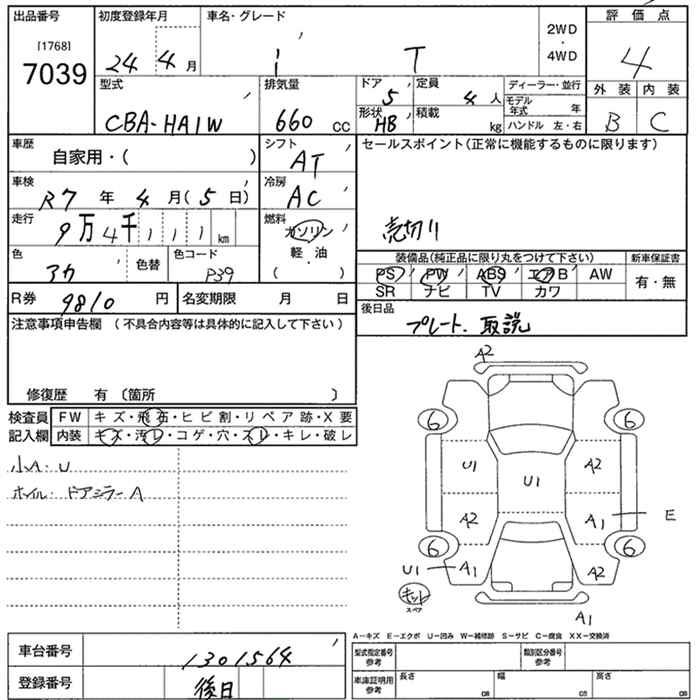 出品番号 初度登録年月 車名・グレード 2WD・4WD 評価点
[1768]
7039 24 4月 i T 4
型式 排気量 ドア 5 定員 4人 ディーラー・並行 外装 内装
CBA-HA1W 660 CC 形状 HB 積載 kg モデル年式 年 B C
ハンドル 左・右
車歴 自家用・( ) シフト AT セールスポイント(正常に機能するものに限ります)
車検 R7年 4月(5日) 冷房 AC
走行 9万4千 km 燃料 ガソリン・軽・油 ( ) 売切り
色 アカ 色替 色コード P39
装備品(純正品に限り丸をつけて下さい) 新車保証書
PS PW ABS エアB AW 有・無
SR ナビ TV カワ
R券 9810円 名変期限 月 日
後日品 プレート. 取説
注意事項申告欄 (不具合内容等は具体的に記入して下さい)
修復歴 有 〔箇所 〕
検査員 FW キズ・飛石・ヒビ割・リペア跡・X要
記入欄 内装 キズ・汚レ・コゲ・穴・スレ・キレ・破レ
小A・U
ホイル・ドアミラーA
A2
6 6
U1 U1 A2
A2 A1 E
6 6
U1 A1 A2
キット
スペア
A1
A-キズ E-エクボ U-凹み W-補修跡 S-サビ C-腐食 XX-交換済
車台番号 1301564
型式指定番号 参考 類別区分番号 参考
登録番号 後日
車庫証明用 参考 長さ cm 幅 cm 高さ cm